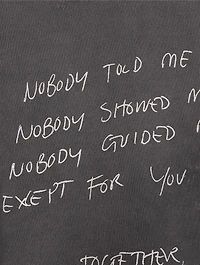 NOBODY TOLD ME
NOBODY SHOWED M
NOBODY GUIDED
EXEPT FOR YOU
TOGETHER,